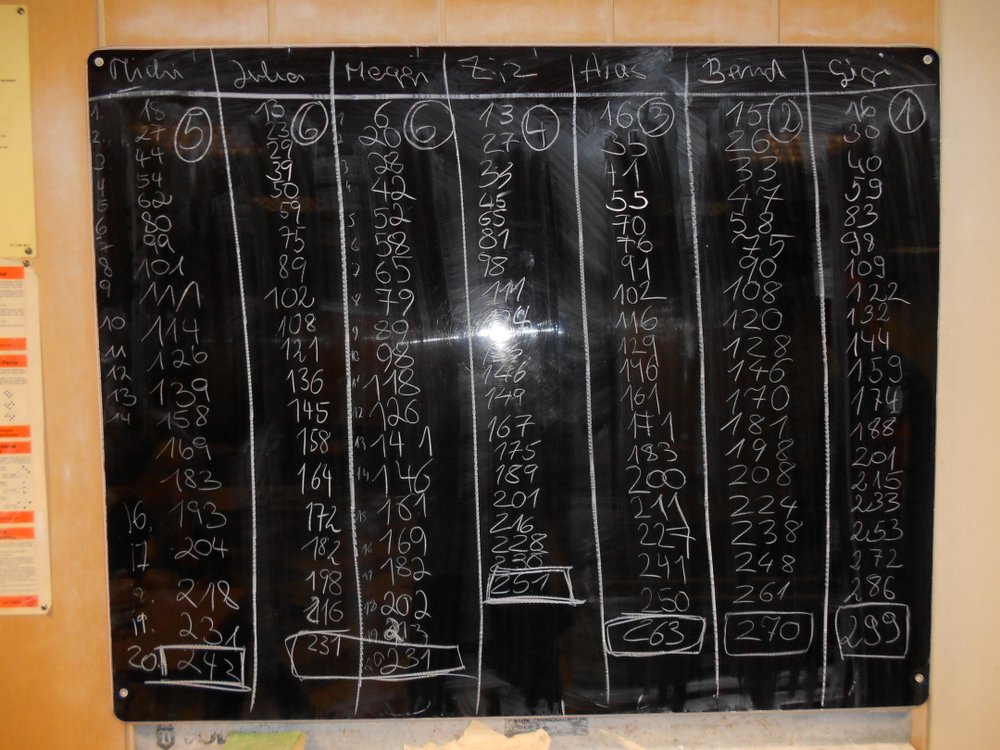 Michi Julia Meggi Ziz Hias Bernd
1. 18 5 13 6 6 6 13 4 16 3 15 2 16 1
2. 27 23 20 27 35 26 30
3. 44 29 28 36 41 33 40
4. 54 39 42 45 55 47 59
5. 62 50 52 65 70 58 83
6. 80 59 58 81 76 75 98
7. 99 75 65 98 91 90 109
8. 101 89 79 111 102 108 122
9. 111 102 89 116 120 132
10 114 108 98 129 128 144
11 126 121 118 146 146 146 159
12 139 136 126 149 161 170 174
13 158 145 141 167 171 181 188
14 169 158 146 175 183 198 201
183 164 161 189 200 208 215
16. 193 172 169 201 211 224 233
17 204 182 182 216 227 238 253
218 198 202 228 241 248 272
19. 231 216 213 238 250 261 286
20. 243 231 231 251 263 270 299